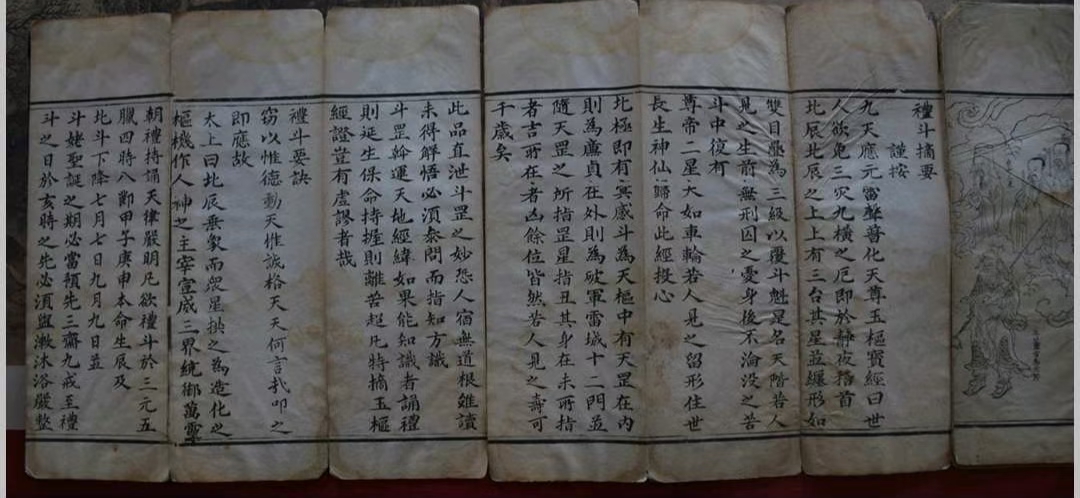 禮斗摘要
謹按
九天應元雷聲普化天尊玉樞寶經曰世
人欲免三灾九横之厄即於静夜稽首
北辰北辰之上上有三台其星並纏形如
雙目疊為三級以覆斗魁是名天階若人
見之生前無刑囚之憂身後不淪没之苦
斗中復有
尊帝二星大如車輪若人見之留形住世
長生神仙歸命此經投心
北極即有冥感斗為天樞中有天罡在内
則為廉貞在外則為破軍雷城十二門並
隨天罡之所指罡星指丑其身在未所指
者吉所在者凶餘位皆然若人見之壽可
千歲矣
此品直泄斗罡之妙恐人宿無道根雖讀
未得解悟必須叅問而指知方識
斗罡斡運天地經緯如果能知識者誦禮
則延生保命持握則離苦超凡特摘玉樞
經證豈有虚謬者哉
禮斗要訣
窃以惟德動天惟誠格天天何言哉叩之
即應故
太上曰北辰垂象而衆星拱之為造化之
樞機作人神之主宰宣威三界統御萬靈
朝禮持誦天律嚴明凡欲禮斗於三元五
臘四時八節甲子庚申本命生辰及
北斗下降七月七日九月九日並
斗姥聖誕之期必當預先三齋九戒至禮
斗之日於亥時之先必須盥漱沐浴嚴整